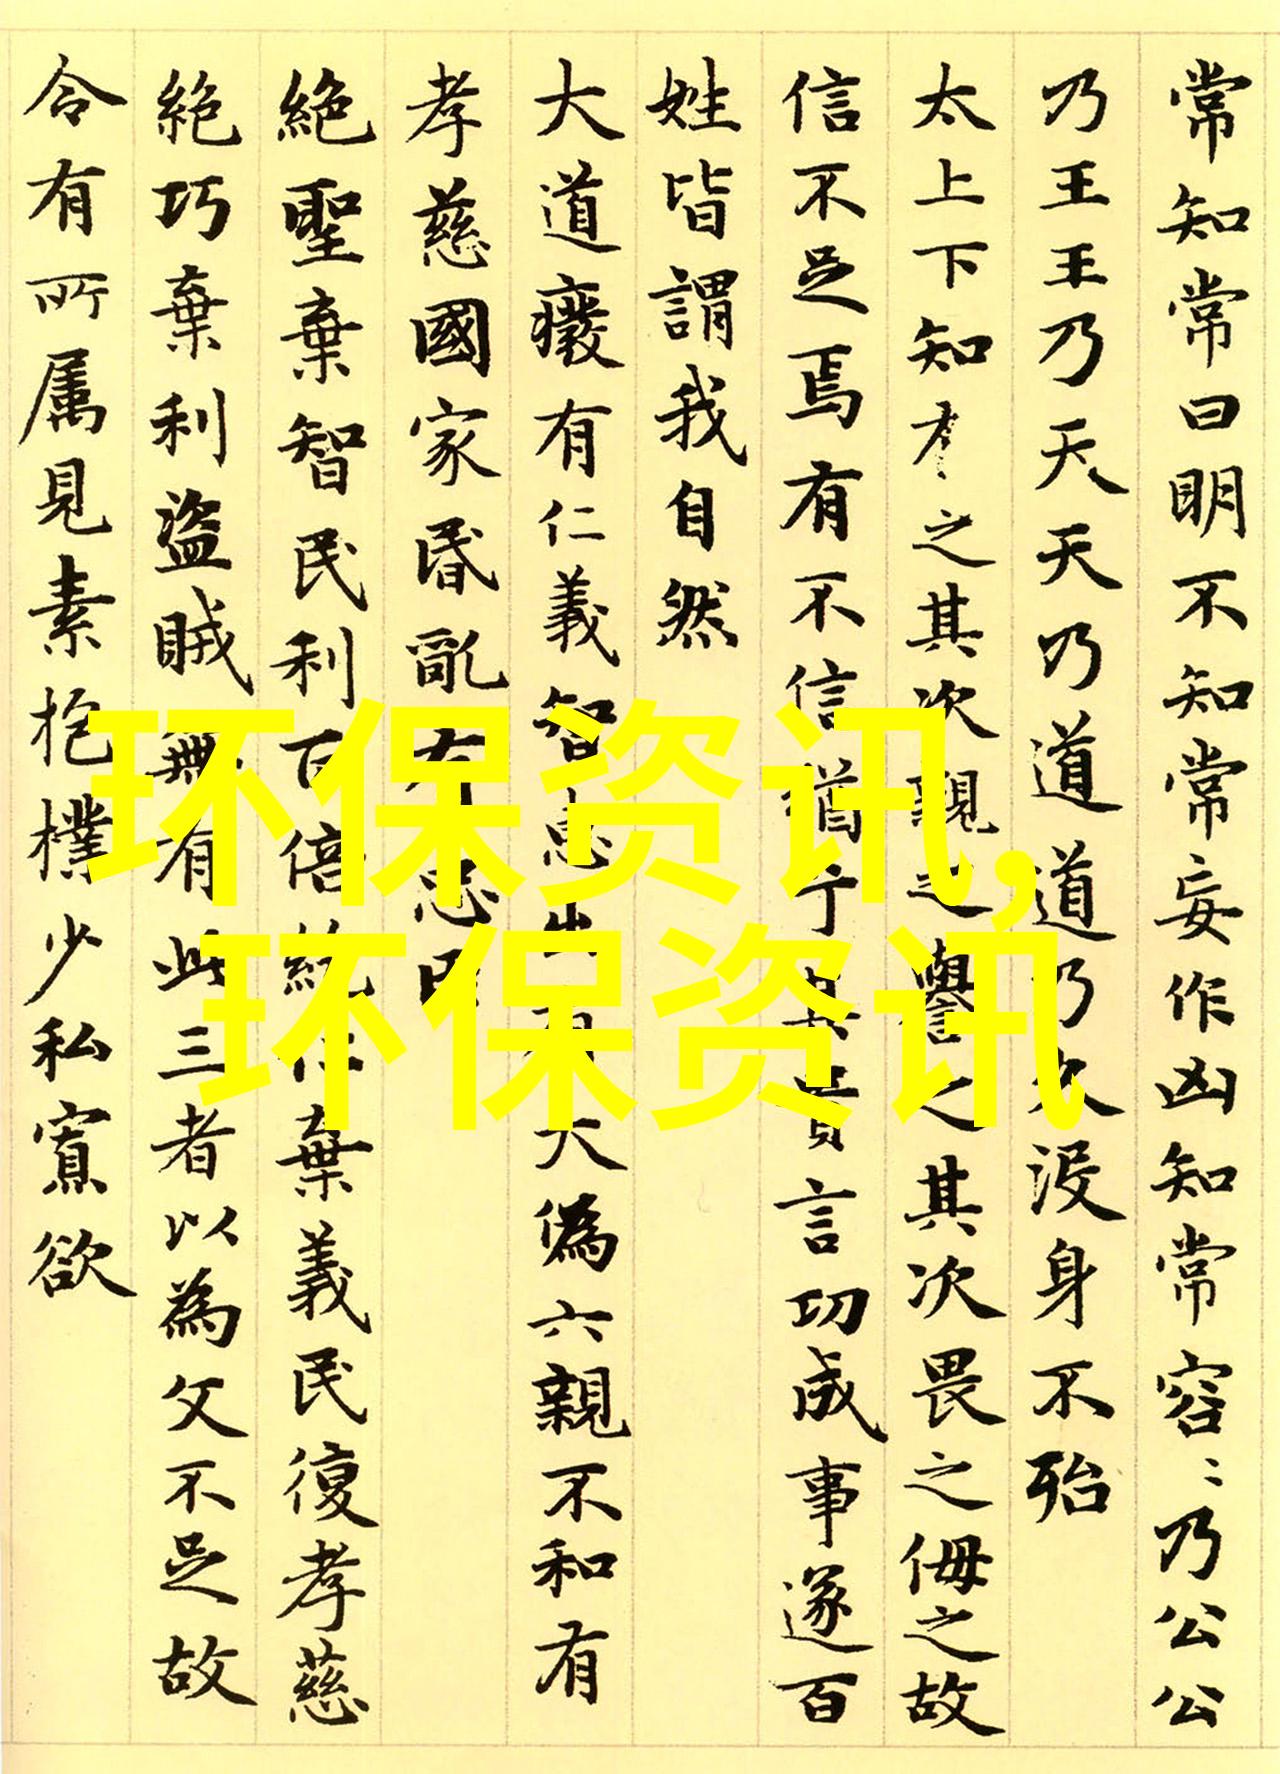 常知常曰明不知知常妄作凶知常容㆓乃公公
乃王王乃天天乃道道乃久沒身不殆
太上下知有之其次親之譽之其次畏之侮之故
信不足焉有不信猶其貴言功成事遂百
姓皆謂我自然
大道癈有仁義智惠出有大偽六親不和有
孝慈國家昏亂有忠臣
絕聖棄智民利百倍絕棄義民復孝慈
絕巧棄利盜賊無有此三者以為文不足故
令有所属見素抱樸少私寡欲
环保资讯,
环保资讯